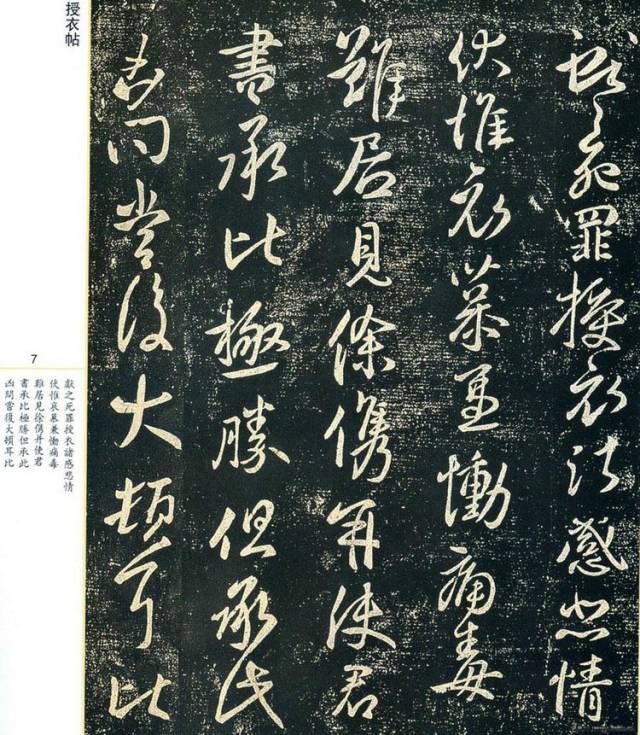 獻之死罪授衣諸感悲情
伏惟哀慕兼慟痛毒
雖居見徐儁并使君
書承比極勝但承此
凶問當復大頓耳比
授衣帖
7
獻之死罪授衣諸感悲情
伏惟哀慕兼慟痛毒
雖居見徐儁并使君
書承比極勝但承此
凶問當復大頓耳比